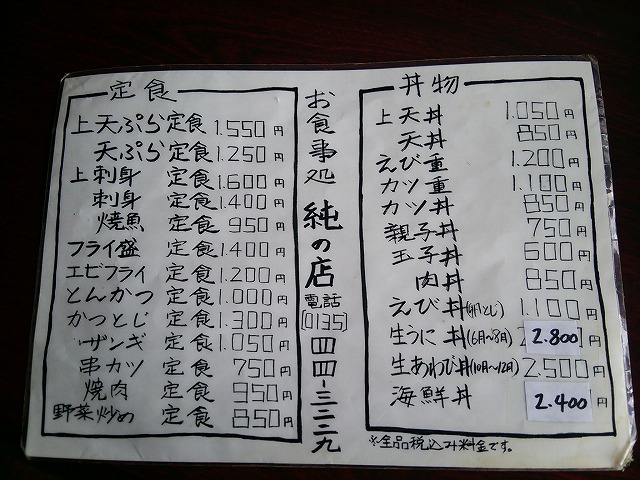 定食
上天ぷら定食 1.550円
天ぷら定食 1.250円
上刺身 定食 1.600円
刺身 定食 1.400円
焼魚 定食 950円
フライ盛 定食 1.400円
エビフライ 定食 1.200円
とんかつ 定食 1.000円
かつとじ 定食 1.300円
ザンギ 定食 1.050円
串カツ 定食 750円
焼肉 定食 950円
野菜炒め 定食 850円
お食事処 純の店
電話
(0135)
四四-三二二九
丼物
上天丼 1.050円
天丼 850円
えび重 1.200円
カツ重 1.100円
カツ丼 850円
親子丼 750円
玉子丼 600円
肉丼 850円
えび丼(卵とじ) 1.100円
生うに丼(6月~8月) 2.800円
生あわび丼(10月~12月) 2.500円
海鮮丼 2.400円
※全品税込み料金です。